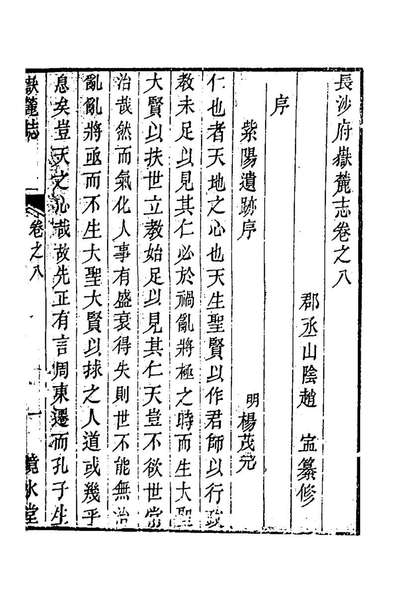 長沙府嶽麓志卷之八
郡丞山陰趙　寧纂修
序
紫陽遺跡序
明楊茂元
仁也者天地之心也天生聖賢以作君師以行政
教未足以見其仁必於禍亂將極之時而生大聖
大賢以扶世立教始足以見其仁天豈不欲世常
治哉然而氣化人事有盛衰得失則世不能無治
亂亂將亟而不生大聖大賢以捄之人道或幾乎
息矣豈天之心哉故先正有言周東遷而孔子生
嶽麓志
卷之八
一
鏡水堂